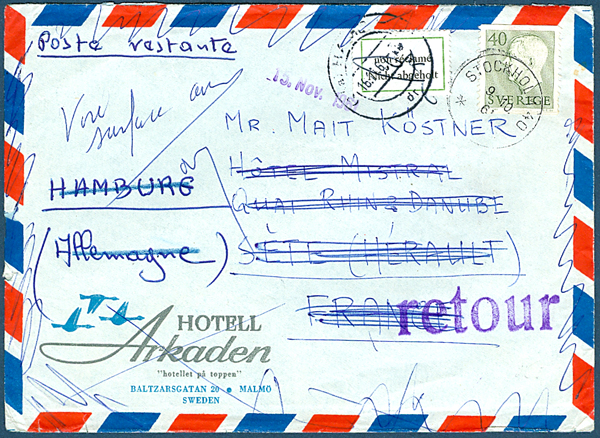 Poste restante
non réclamé
nicht abgeholt
40
SVERIGE
STOCKHOLM 40
13. NOV.
Voie surface
MR. MAIT KÖSTNER
HÔTEL MISTRAL
QUAI RHIN & DANUBE
SÈTE (HÉRAULT)
FRANCE
HAMBURG
(Allemagne)
retour
HOTELL
Arkaden
"hotellet på toppen"
BALTZARSGATAN 20 • MALMÖ
SWEDEN